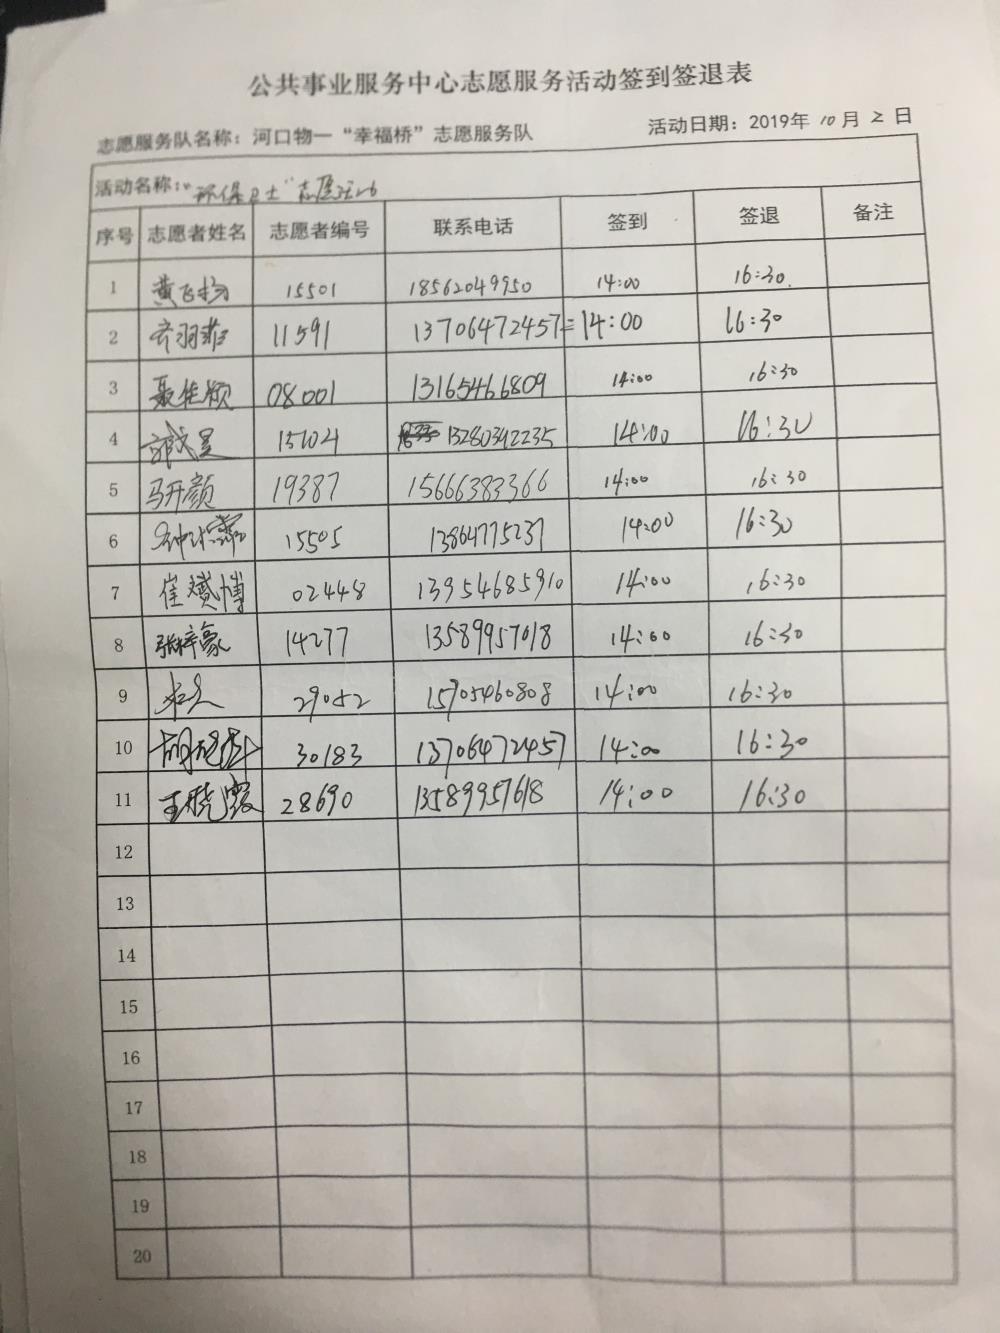 公共事业服务中心志愿服务活动签到签退表
志愿服务队名称：河口物一“幸福桥”志愿服务队 活动日期：2019年 10 月 2 日
活动名称：“环保卫士”志愿活动
序号 志愿者姓名 志愿者编号 联系电话 签到 签退 备注
1 黄飞扬 15501 18562049950 14:00 16:30
2 齐羽菲 11591 13706472457 14:00 16:30
3 聂佳颖 08001 13165466809 14:00 16:30
4 15704 13280342235 14:00 16:30
5 马开颜 19387 15666383366 14:00 16:30
6 15505 13864775237 14:00 16:30
7 崔赟博 02448 13954685910 14:00 16:30
8 张梓豪 14277 13589957618 14:00 16:30
9 29052 15705460808 14:00 16:30
10 30183 13706472457 14:00 16:30
11 王晓霞 28690 13589957618 14:00 16:30
12
13
14
15
16
17
18
19
20